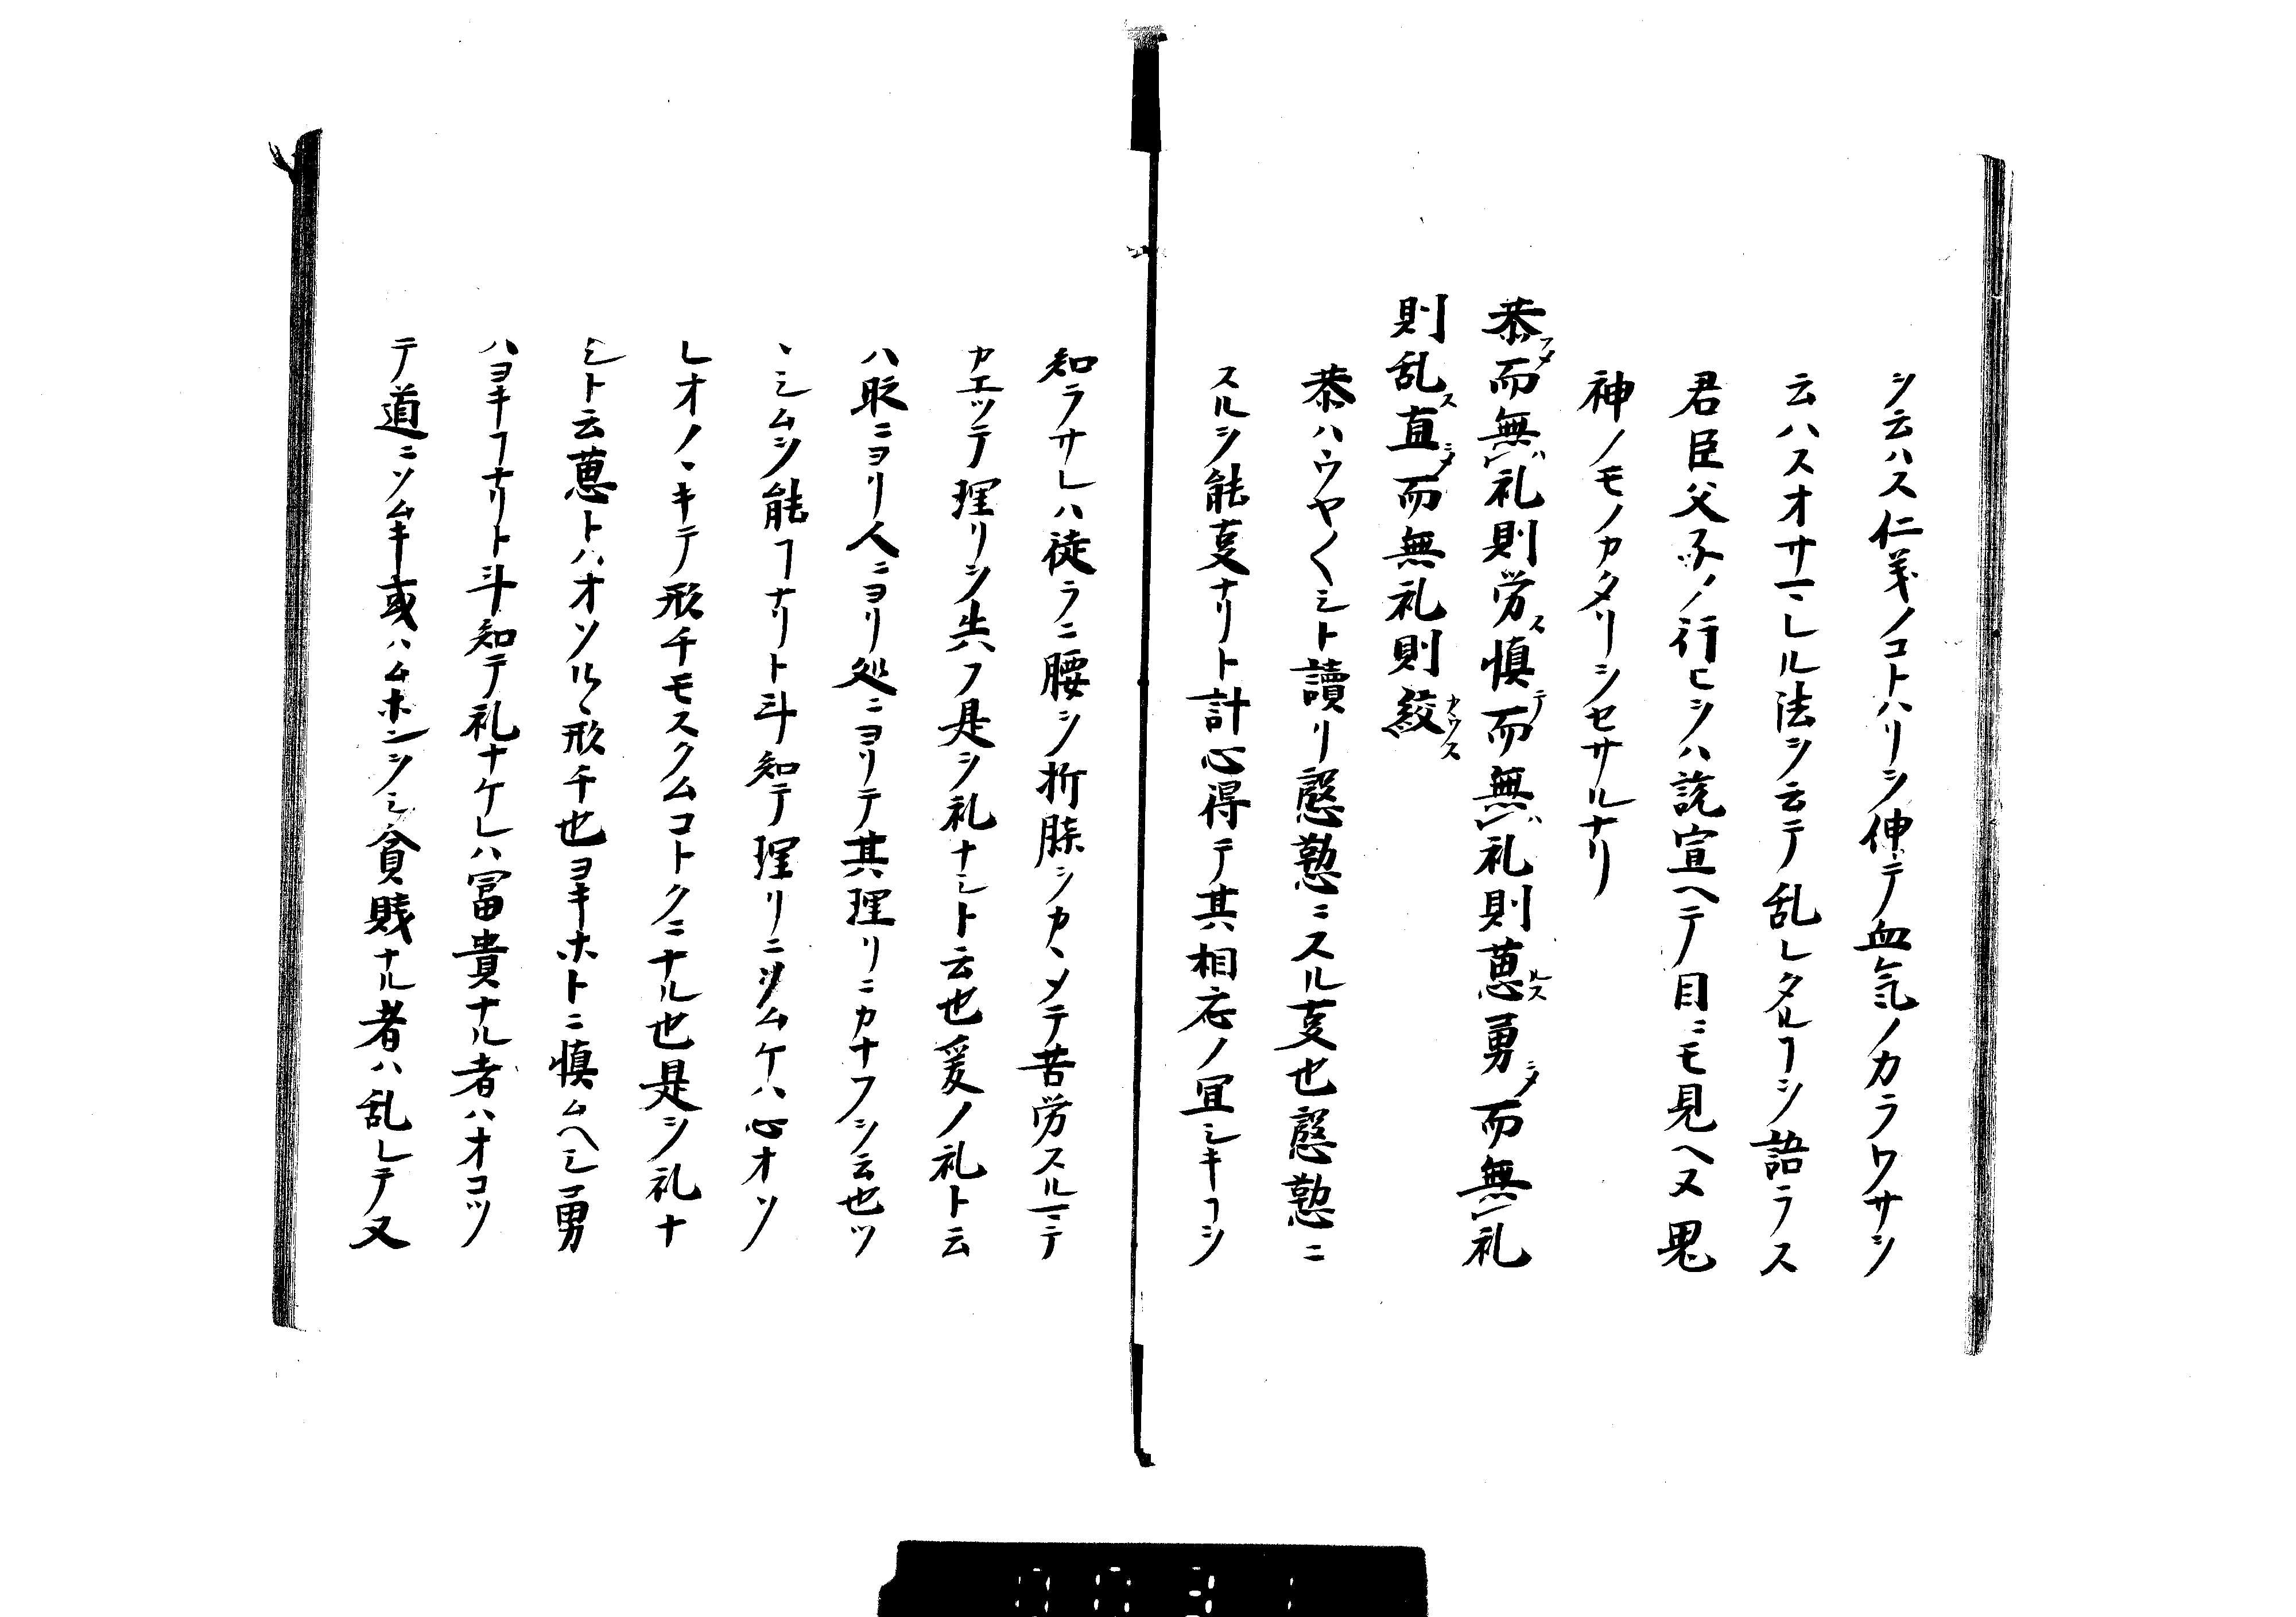 シ云ハス仁義ノコトハリシ伸テ血気ノカラワサシ
云ハスオサマレル法シ云テ乱レタルヿシ語ラス
君臣父子ノ行ヒシハ説宣ヘテ目ニモ見ヘヌ鬼
神ノモノカタリシセサルナリ
恭而無礼則労慎而無礼則葸勇而無礼
則乱直而無礼則絞
恭ハウヤ〱シト讀リ慇懃ニスル叓也慇懃ニ
スルシ能叓ナリト計心得テ其相応ノ宜シキヿシ
知ラサレハ徒ラニ腰シ折膝シカヽメテ苦労スルマテ
カエッテ理リシ失フ是シ礼ナシト云也爰ノ礼ト云
ハ時ニヨリ人ニヨリ処ニヨリテ其理リニカナフシ云也ツ
ヽシムシ能ヿナリト斗知テ理リニソムケハ心オソ
レオノヽキテ形チモスクムコトクニナル也是シ礼ナ
シト云葸トハオソルヽ形チ也ヨキホトニ慎ムヘシ勇
ハヨキヿナリト斗知テ礼ナケレハ冨貴ナル者ハオコツ
テ道ニソムキ或ハムホンシシ貧賎ナル者ハ乱レテ又